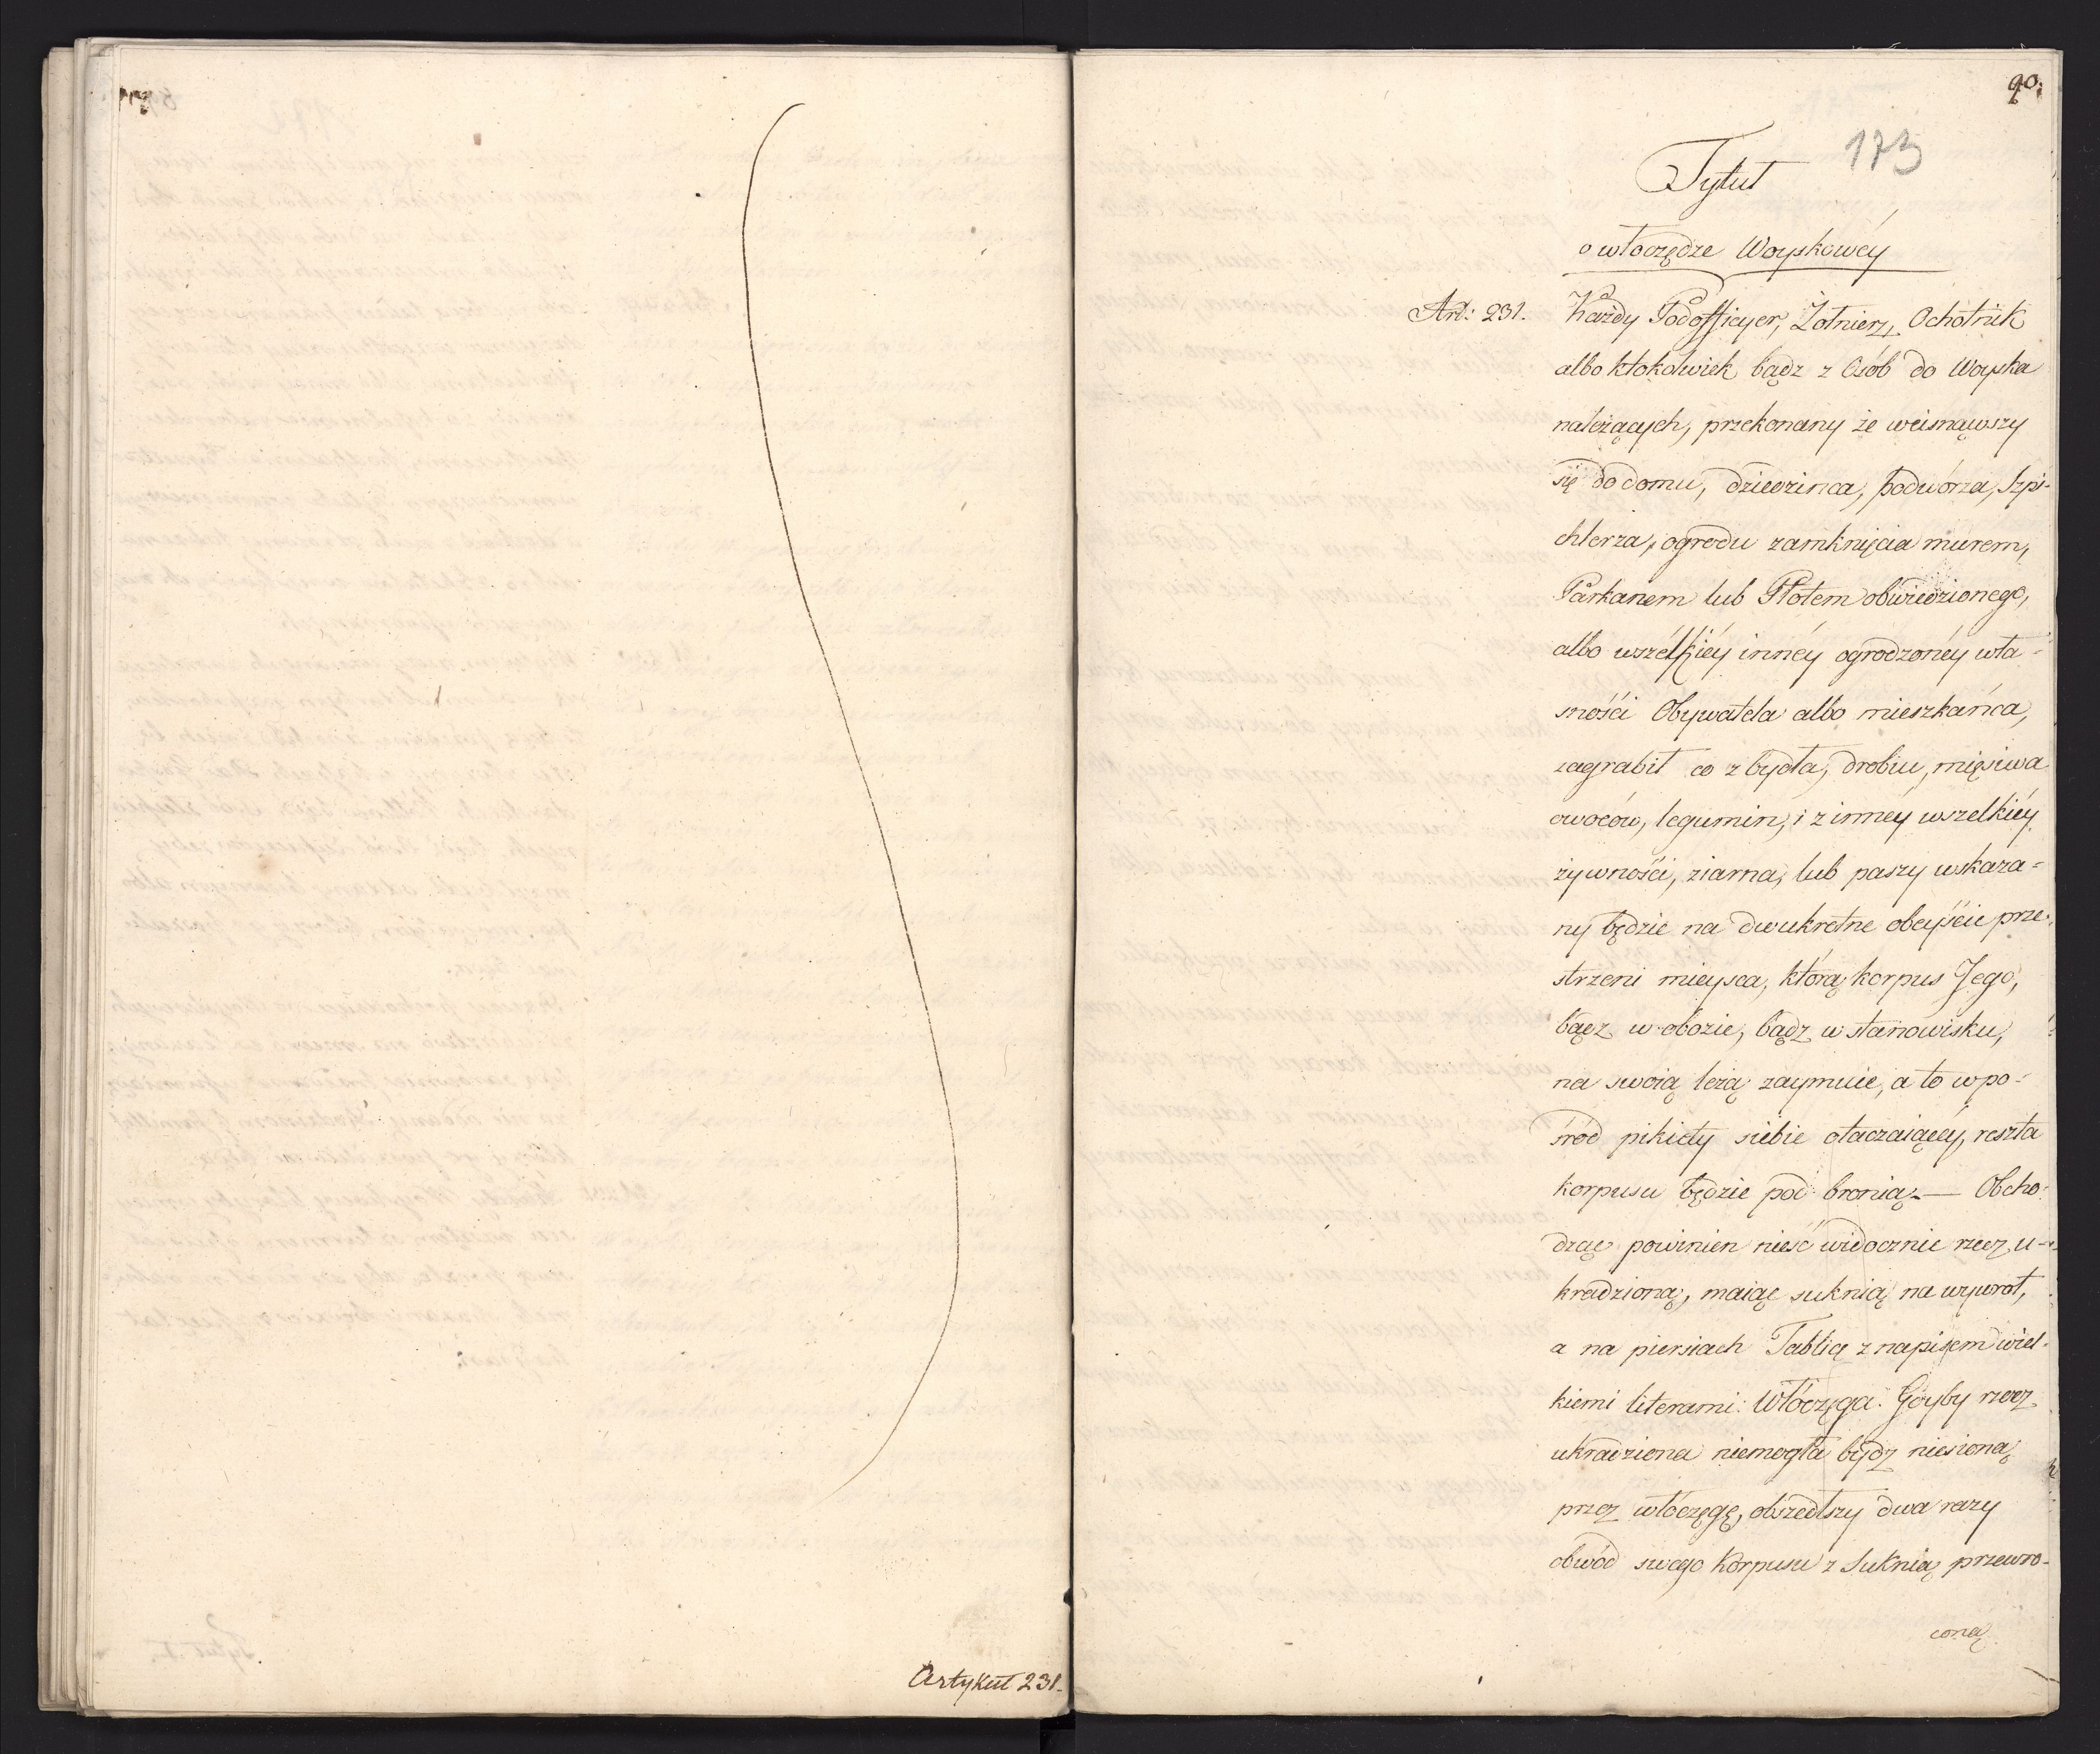 Artykuł 231.
90.
173
Tytuł
o włoczędze Woyskowéy
Art: 231. Każdy Podofficyer, Żołnierz, Ochotnik
albo ktokolwiek bądz z Osób do Woyska
należących, przekonany że wcisnąwszy
się do domu, dziedzinca, podwórza, Szpi-
chlerza, ogrodu zamknięcia murem,
Parkanem lub Płotem obwiedzionego,
albo wszélkiéy innéy ogrodzonéy wła=
snośći Obywatela albo mieszkańca,
zagrabił co z bydła, drobiu, mięsiwa
owoców, legumin, i z innéy wszelkiéy
żywnośći, ziarna, lub paszy wskaza=
ny będzie na dwukrotne obeyśćie prze-
strzeni mieysca, którą korpus Jego,
bądz w obozie, bądz w stanowisku,
na swoią leżą zaymuie, a to wpo-
śród pikiety siebie otaczaiącéy, reszta
korpusu będzie pod bronią. — Obcho-
dząc powinien nieść widocznie rzecz u-
kradzioną, maiąc suknią na wywrot,
a na piersiach Tablię z napisem wiel-
kiemi literami: Włóczęga. Gdyby rzecz
ukradziona niemogła bydz niesioną
przez włóczęgę, obszedłszy dwa razy
obwód swego Korpusu z Suknią przewro-
coną